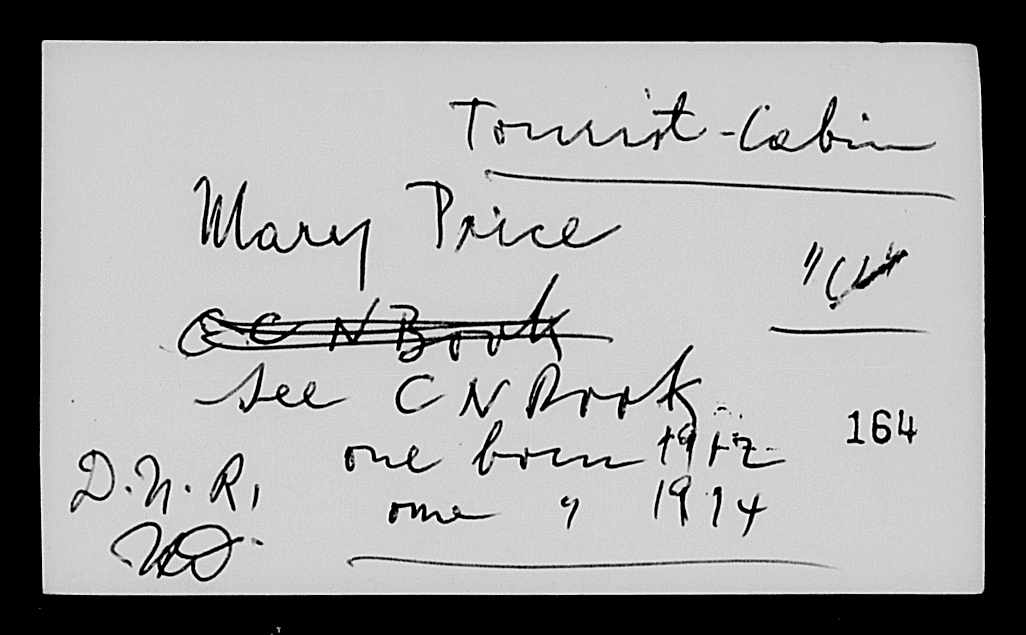 Tourist-Cabin
Mary Price
C C N Book
See C N Book
164
one born 1912
D.N.R.
one " 1914